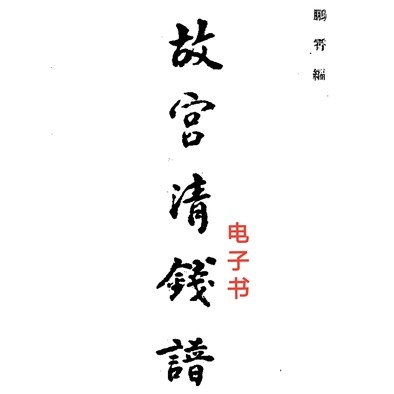 鹏霄編
故宫清錢譜
电子书